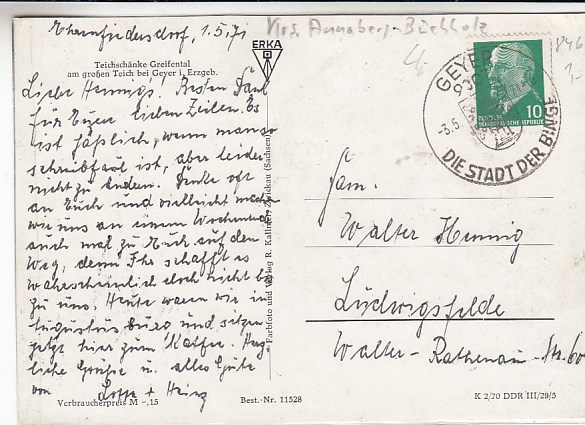 Ehrenfriedersdorf, 1.5.71
Krs. Annaberg-Buchholz
ERKA
Teichschänke Greifental
am großen Teich bei Geyer i. Erzgeb.
Liebe Hennig's! Besten Dank
für Eure lieben Zeilen. Es
ist häßlich, wenn man so
schreibfaul ist, aber leider
nicht zu ändern. Denke oft
an Euch und vielleicht machen
wir uns an einem Wochenend
auch mal zu Euch auf den
Weg, denn Ihr schafft es
wahrscheinlich doch nicht bis
zu uns. Heute waren wir in
Augustusburg und sitzen
jetzt hier zum Kaffee. Herz-
liche Grüße u. alles Gute
von Lotte + Heinz
Verbraucherpreis M –,15
Best.-Nr. 11528
Farbfoto und Verlag R. Kallmer, Zwickau (Sachsen)
GEYER
DIE STADT DER BINGE
10
DEUTSCHE
DEMOKRATISCHE REPUBLIK
Fam.
Walter Hennig
Ludwigsfelde
Walter-Rathenau-Str. 60
K 2/70 DDR III/29/5